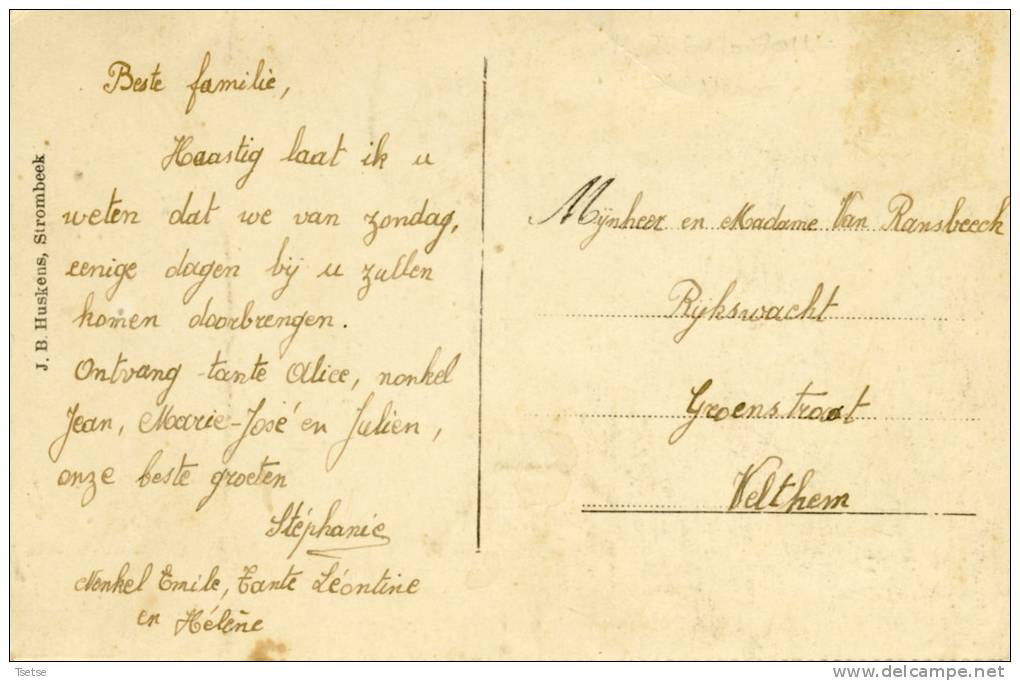 Beste familie,
Haastig laat ik u
weten dat we van zondag,
eenige dagen bij u zullen
komen doorbrengen.
Ontvang tante Alice, nonkel
Jean, Marie-José en Julien,
onze beste groeten
Stéphanie
Nonkel Emile, Tante Léontine
en Hélène
J. B. Huskens, Strombeek
Mijnheer en Madame Van Ransbeeck
Rijkswacht
Groenstraat
Velthem
Tsetse
delcampe.net